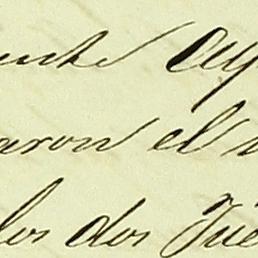 unte Ay
aron el
los dos Jue